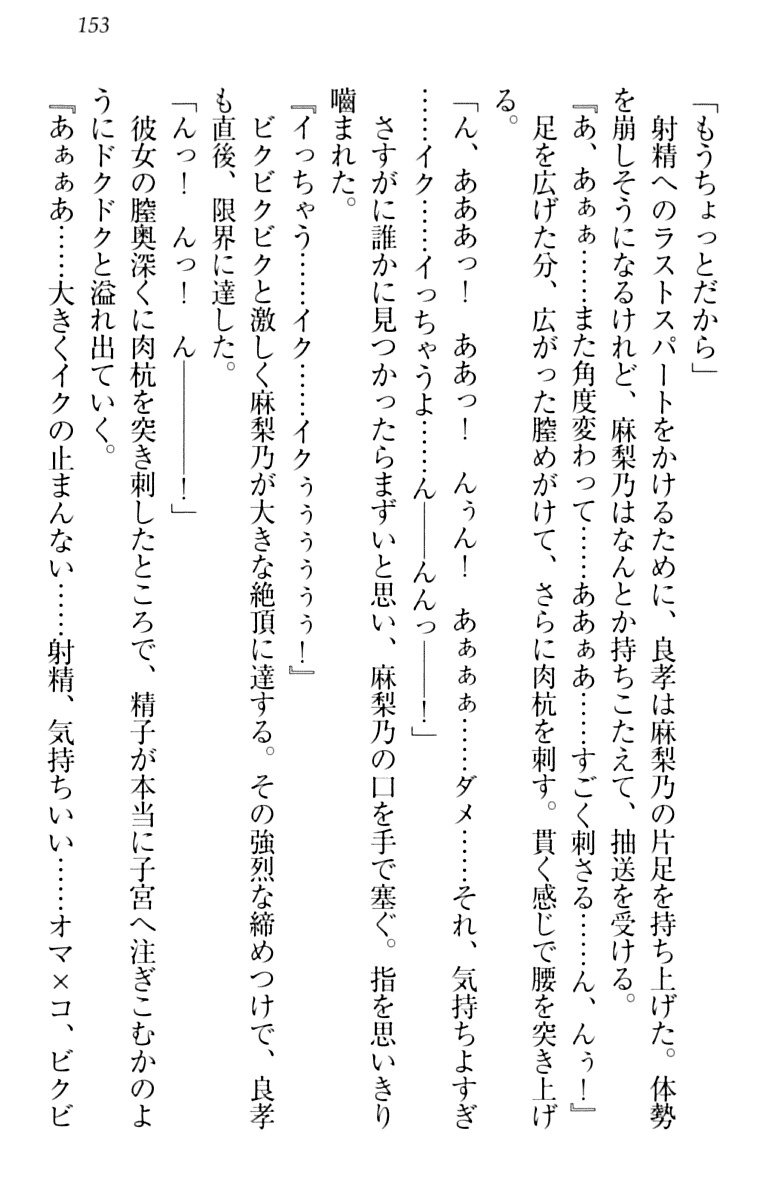 153
「もうちょっとだから」
　射精へのラストスパートをかけるために、良孝は麻梨乃の片足を持ち上げた。体勢
を崩しそうになるけれど、麻梨乃はなんとか持ちこたえて、抽送を受ける。
『あ、あぁぁ……また角度変わって……ああぁあ……すごく刺さる……ん、んぅ！』
　足を広げた分、広がった膣めがけて、さらに肉杭を刺す。貫く感じで腰を突き上げ
る。
「ん、あああっ！　ああっ！　んぅん！　あぁぁぁ……ダメ……それ、気持ちよすぎ
……イク……イっちゃうよ……ん――んんっ――！」
　さすがに誰かに見つかったらまずいと思い、麻梨乃の口を手で塞ぐ。指を思いきり
嚙まれた。
『イっちゃう……イク……イクぅぅぅぅぅぅ！』
　ビクビクビクと激しく麻梨乃が大きな絶頂に達する。その強烈な締めつけで、良孝
も直後、限界に達した。
「んっ！　んっ！　ん――――！」
　彼女の膣奥深くに肉杭を突き刺したところで、精子が本当に子宮へ注ぎこむかのよ
うにドクドクと溢れ出ていく。
『あぁぁあ……大きくイクの止まんない……射精、気持ちいい……オマ×コ、ビクビ